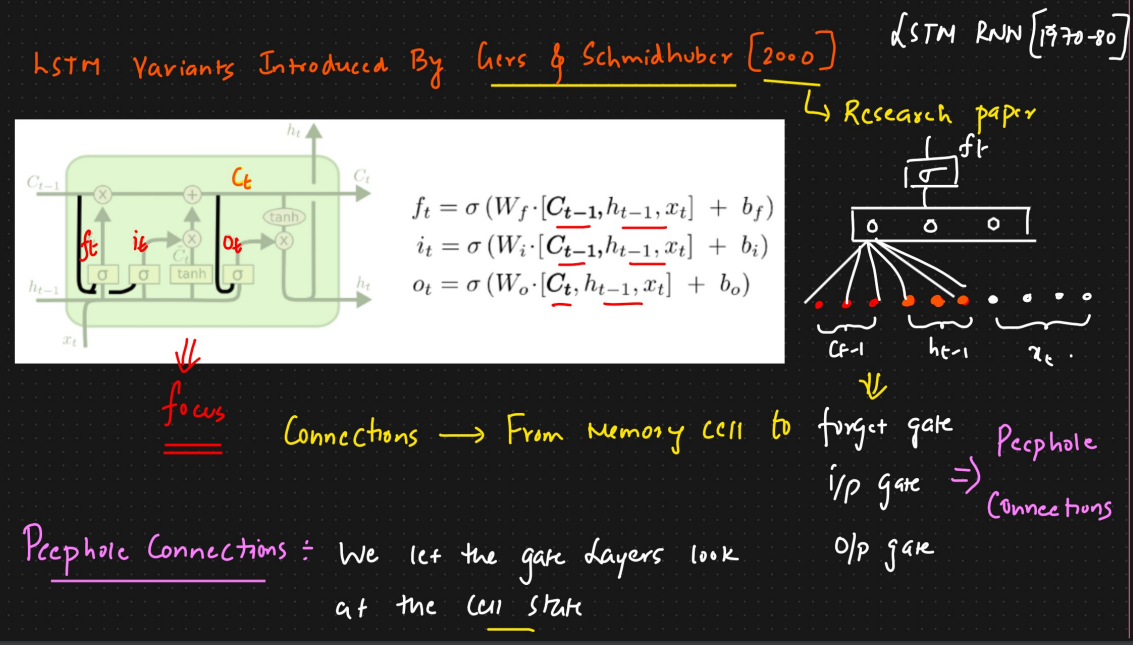 LSTM RNN [1970-80]
LSTM Variants Introduced By Gers & Schmidhuber [2000]
Research paper
h_t
C_{t-1} C_t C_t
tanh
f_t i_t o_t
C̃_t
σ σ tanh σ
h_{t-1} h_t
x_t
f_t = σ (W_f·[C_{t-1}, h_{t-1}, x_t] + b_f)
i_t = σ (W_i·[C_{t-1}, h_{t-1}, x_t] + b_i)
o_t = σ (W_o·[C_t, h_{t-1}, x_t] + b_o)
ft
σ
C_{t-1} h_{t-1} x_t .
focus
Connections → From Memory cell to forget gate
i/p gate ⇒ Peephole Connections
o/p gate
Peephole Connections ÷ We let the gate Layers look
at the Cell State